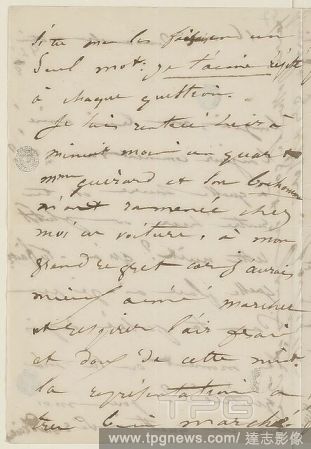 si tu me les faisais un
seul mot: je t'aime répété
à chaque question.
Je suis rentrée hier à
minuit moins un quart
mme Guérard et son
m'ont ramenée chez
moi en voiture, à mon
grand regret car j'aurais
mieux aimé marcher
et respirer l'air frais
et doux de cette nuit.
la représentation a
très bien marché
TPG
www.tpgnews.com/ 達志影像